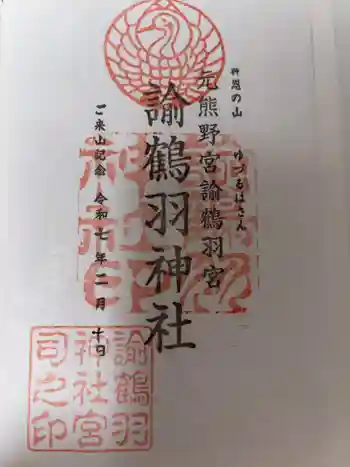 神恩の山 ゆづるはさん
元熊野宮諭鶴羽宮
諭鶴羽神社
ご来山記念 令和七年二月十日
諭鶴羽
神社宮
司之印